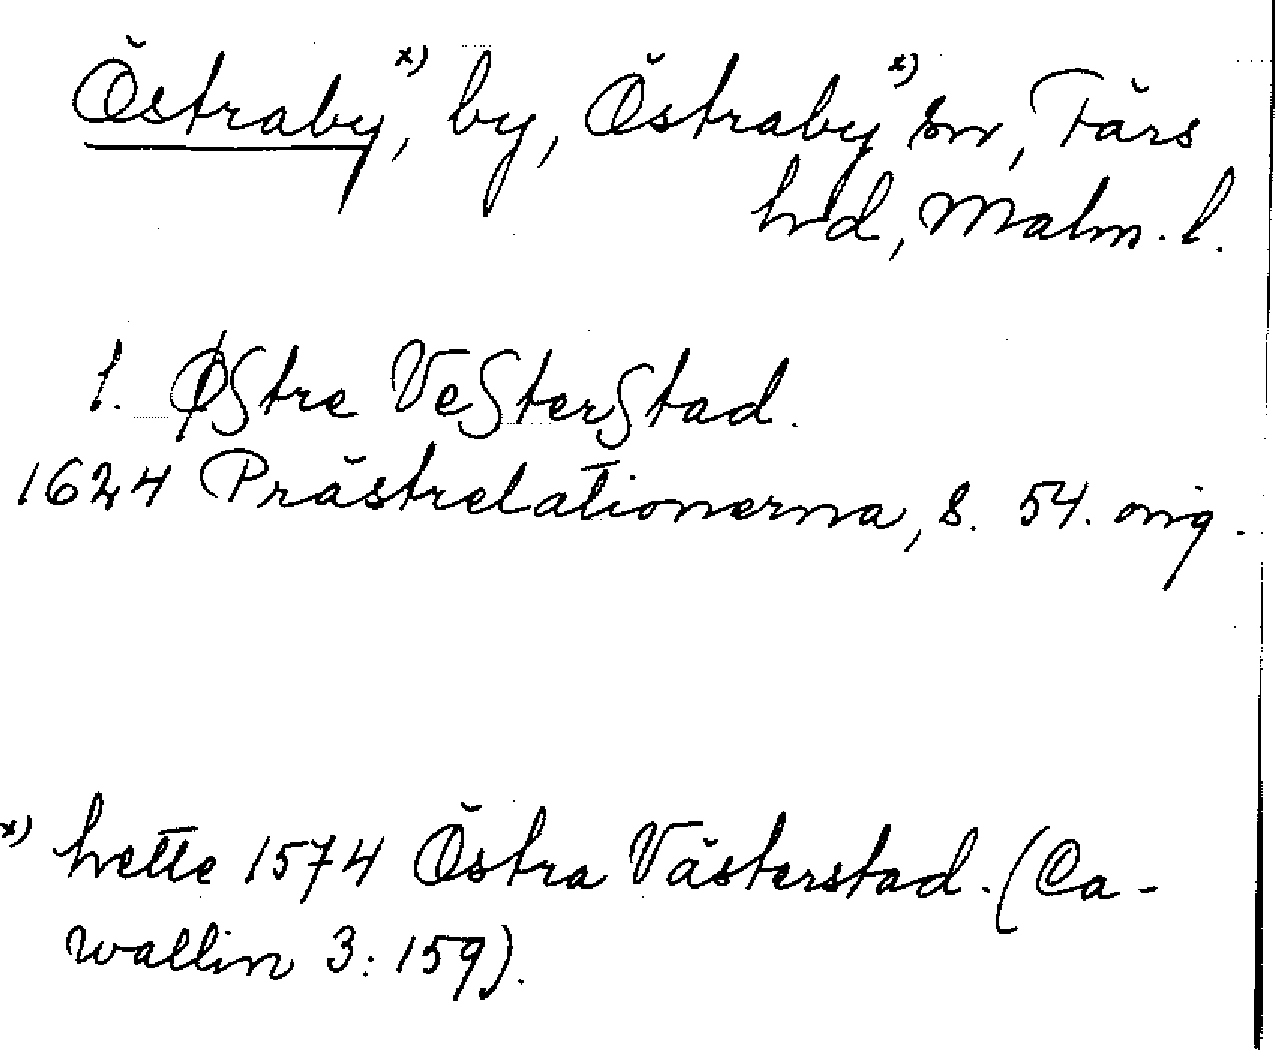 Östraby,x) by, Östrabyx) sn, Färs
hd, Malm. l.
l. Østre Vesterstad.
1624 Prästrelationerna, s. 54. orig.
x) hette 1574 Östra Västerstad. (Ca-
wallin 3: 159).